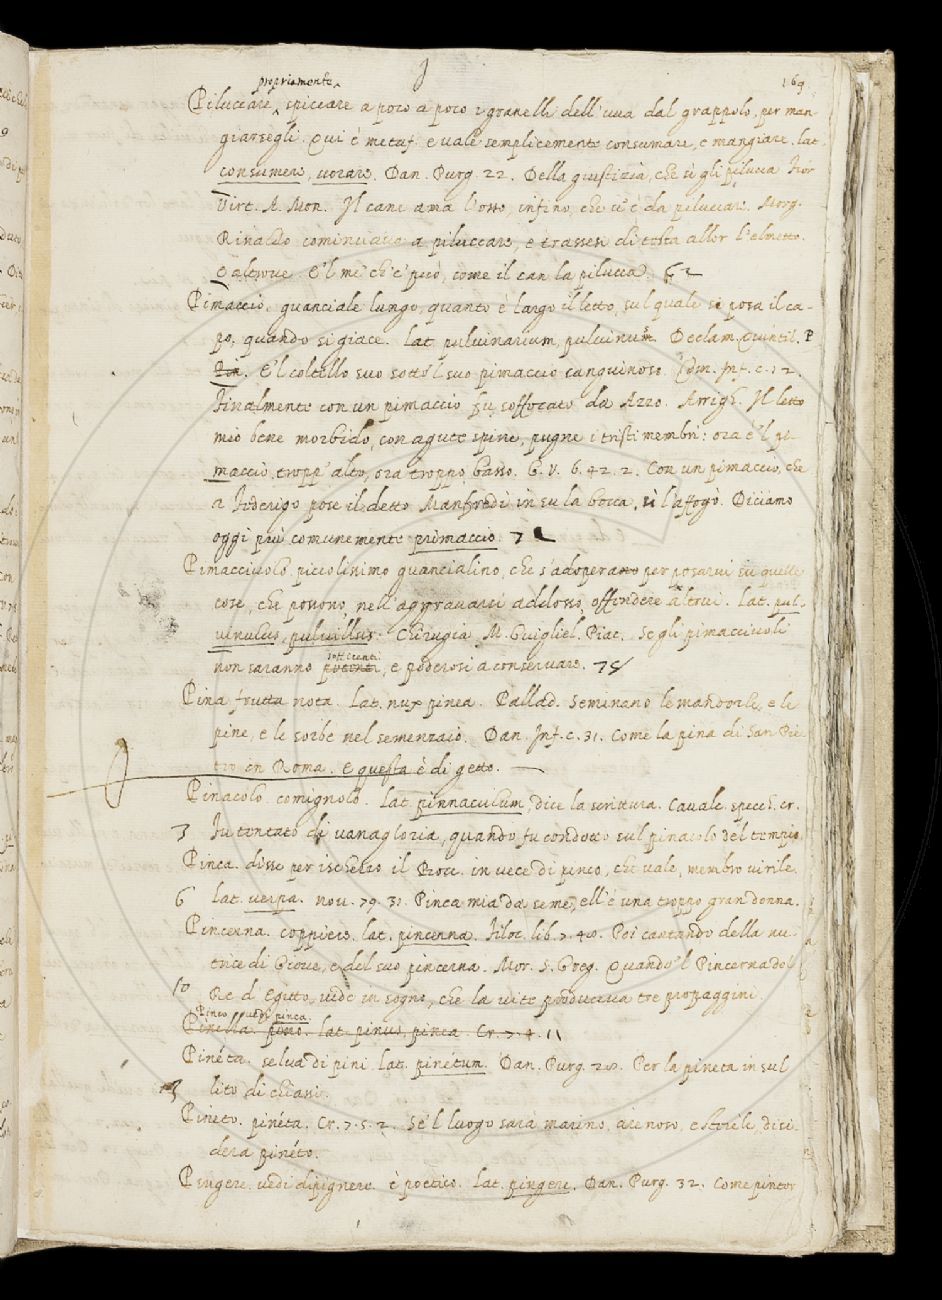 propriamente 169
Piluccare, spiccare a poco a poco i granelli dell'uua dal grappolo, per man
giarsegli. Qui è metaf. e vale semplicemente consumare, e mangiare. lat.
consumere, uorare. Dan. Purg. 22. Della giustizia, che sì gli pilucca Fior
Virt. A. Mon. Il cane ama l'osso, infino, che ci è da piluccare. Morg.
Rinaldo cominciaua a piluccare, e trassesi di testa allor l'elmetto.
E altroue. E'l me ch' e' può, come il can la pilucca. 62
Pimaccio. guanciale lungo, quanto è largo il letto, sul quale si posa il ca-
po, quando si giace. Lat. puluinarium, puluinus. Declam. Quintil. P
E'l coltello suo sotto'l suo pimaccio sanguinoso. Com. Inf. c. 12.
Finalmente con un pimaccio fu soffocato da Azzo. Arrigh. Il letto
mio bene morbido, con agute spine, pugne i tristi membri: ora è 'l pi-
maccio tropp'alto, ora troppo basso. G. V. 6. 42. 2. Con un pimaccio, che
a Federigo pose il detto Manfredi in su la bocca, sì l'affogò. Diciamo
oggi più comunemente primaccio. 7
Pimacciuolo. piccolissimo guancialino, che s'adoperano per posarui su quelle
cose, che possono, nell'aggrauarsi addosso, offendere altrui. Lat. pul-
uinulus, puluillus. Chirugia M. Guigliel. Piac. Se gli pimacciuoli
non saranno potenti, e poderosi a conseruare. 75
Pina frutta nota. Lat. nux pinea. Pallad. Seminano le mandorle, e le
pine, e le sorbe nel semenzaio. Dan. Inf. c. 31. Come la pina di San Pie-
tro in Roma. E questa è di getto.
Pinacolo. comignolo. Lat. pinnaculum, dice la scrittura. Caualc. specch. cr.
3 Fu tentato di uanagloria, quando fu condotto sul pinacolo del tempio.
Pinca. disse per ischerzo il Bocc. in uece di pinco, che vale, membro uirile.
6 Lat. uerpa. nou. 79. 31. Pinca mia da seme, ell'è una troppo gran donna.
Pincerna. coppiere. lat. pincerna. Filoc. lib. 7. 40. Poi cantando della nu-
trice di Gioue, e del suo pincerna. Mor. S. Greg. Quando'l Pincerna del
10 Re d'Egitto, uide in sogno, che la uite produceua tre propaggini.
Pinco vedi pinca.
Pinella. pino. lat. pinus, pinea. Cr. 7. 4. 11
Pinéta. selua di pini. Lat. pinétum. Dan. Purg. 28. Per la pineta in sul
3 lito di chiassi.
Pinéto. pinéta. Cr. 7. 5. 2. Se'l luogo sarà marino, arenoso, e sterile, disi-
dera pinéto.
Pingere. vedi dipignere. è poetico. Lat. pingere. Dan. Purg. 32. Come pintor